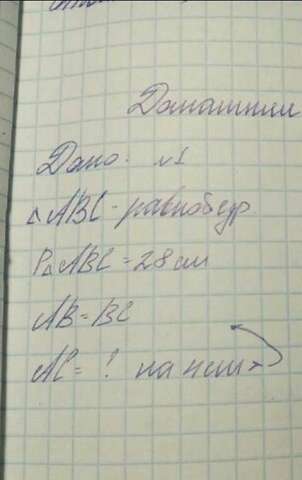 Домашнии
Дано: №1
△ABC - равнобедр.
P△ABC = 28 см
AB = BC
AC = ? на